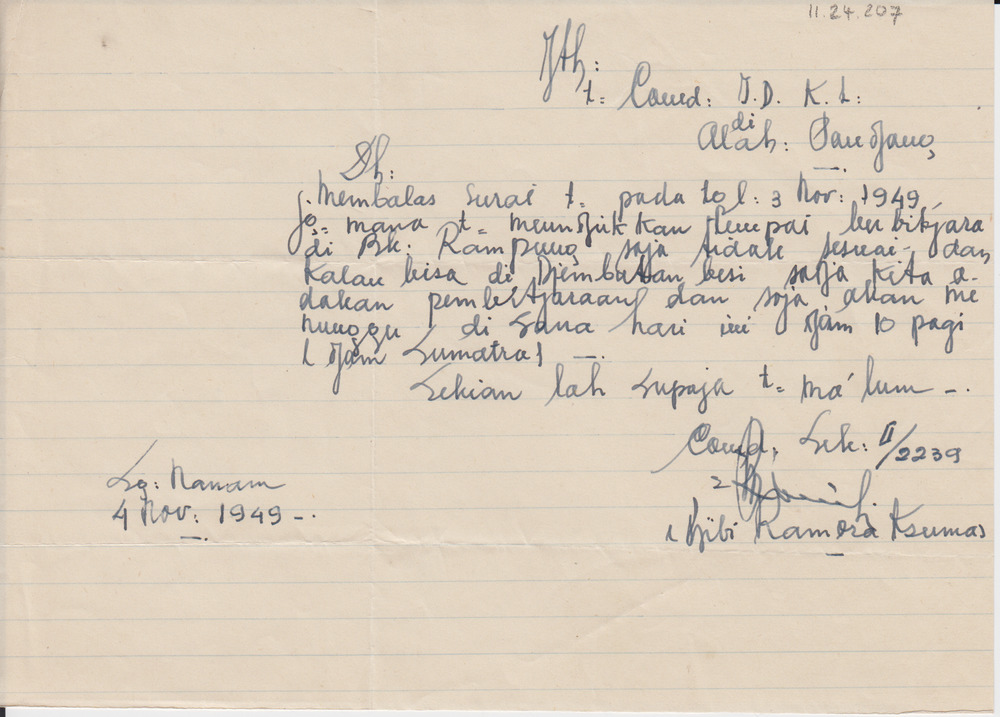 11.24.207
Jth:
t= Comd: T.D. K.L:
di
Alah: Pandjang
Dh:
Membalas surat t= pada tgl: 3 Nov: 1949,
jg= mana t= menundjukkan tempat berbitjara
di Bk: Kampung saja tidak sesuai dan
kalau bisa di Djembatan besi sadja kita a-
dakan pembitjaraan dan saja akan me
nunggu di sana hari ini djam 10 pagi
( djam Sumatra )
Sekian lah supaja t= ma'lum -.
Comd. Sek: II/2239
Sg: Nanam
4 Nov: 1949 -.